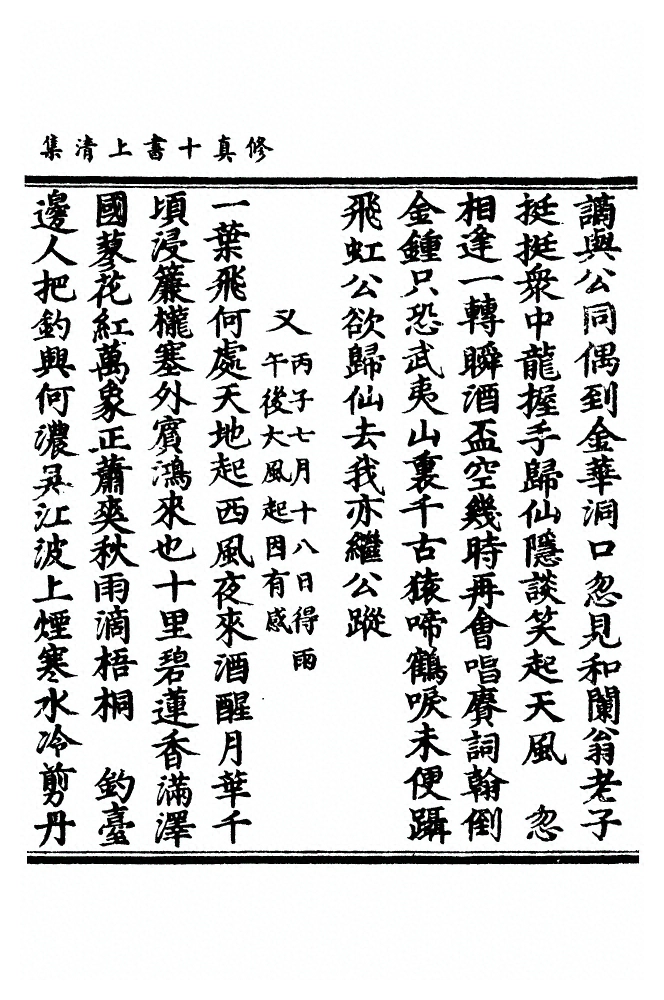 修真十書上清集
謫與公同偶到金華洞口忽見和闌翁老子
挺挺衆中龍握手歸仙隱談笑起天風　忽
相逢一轉瞬酒盃空幾時再會唱賡詞翰倒
金鍾只恐武夷山裏千古猿啼鶴唳未便躡
飛虹公欲歸仙去我亦繼公蹤
又
丙子七月十八日得雨
午後大風起因有感
一葉飛何處天地起西風夜來酒醒月華千
頃浸簾櫳塞外賓鴻來也十里碧蓮香滿澤
國蓼花紅萬象正蕭爽秋雨滴梧桐　釣臺
邊人把釣興何濃吳江波上煙寒水冷剪丹